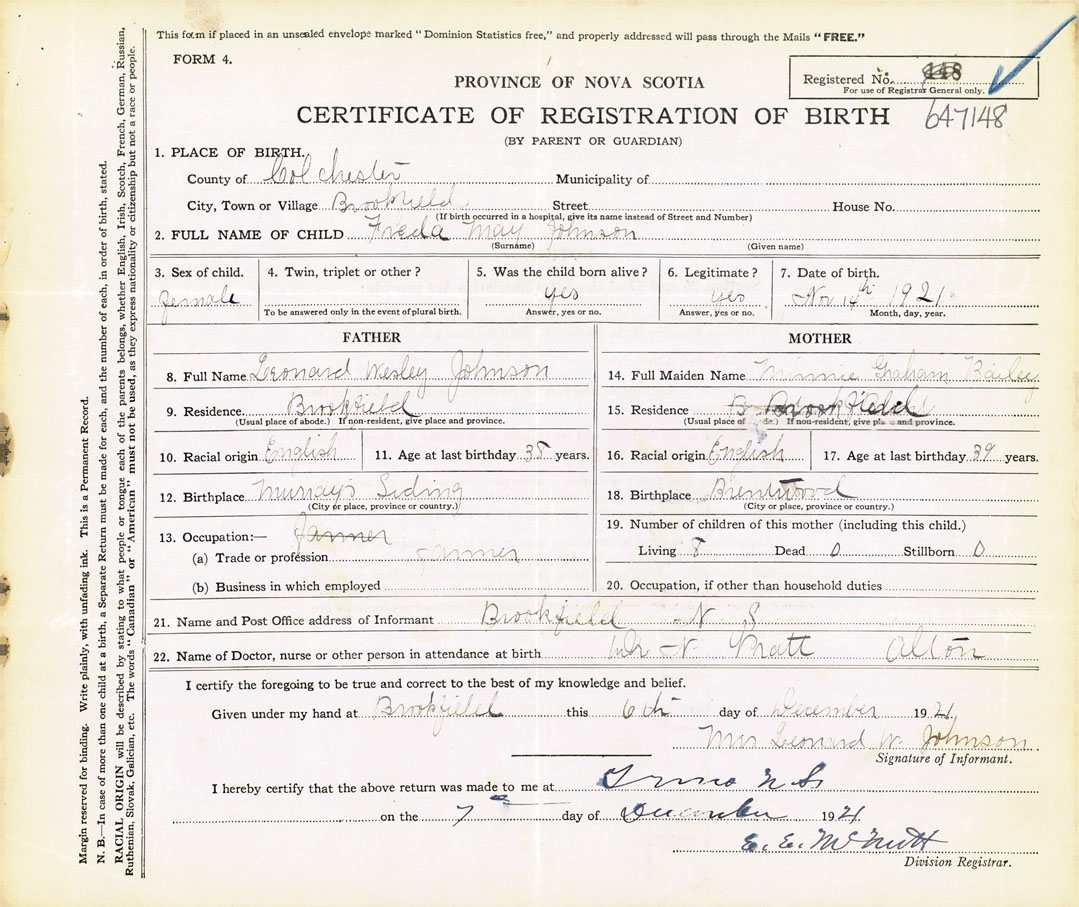 This form if placed in an unsealed envelope marked "Dominion Statistics free," and properly addressed will pass through the Mails "FREE."
FORM 4.
Registered No. 148
For use of Registrar General only.
PROVINCE OF NOVA SCOTIA
CERTIFICATE OF REGISTRATION OF BIRTH
647148
(BY PARENT OR GUARDIAN)
1. PLACE OF BIRTH.
County of Colchester Municipality of
City, Town or Village Brookfield Street House No.
(If birth occurred in a hospital, give its name instead of Street and Number)
2. FULL NAME OF CHILD Freda May Johnson
(Surname) (Given name)
3. Sex of child. 4. Twin, triplet or other? 5. Was the child born alive? 6. Legitimate? 7. Date of birth.
female yes yes Nov 14th 1921
To be answered only in the event of plural birth. Answer, yes or no. Answer, yes or no. Month, day, year.
FATHER MOTHER
8. Full Name Leonard Wesley Johnson 14. Full Maiden Name Minnie Graham Bailey
9. Residence Brookfield 15. Residence Brookfield
(Usual place of abode.) If non-resident, give place and province. (Usual place of abode.) If non-resident, give place and province.
10. Racial origin English 11. Age at last birthday 38 years. 16. Racial origin English 17. Age at last birthday 39 years.
12. Birthplace Murrays Siding 18. Birthplace Brentwood
(City or place, province or country.) (City or place, province or country.)
13. Occupation:— Farmer 19. Number of children of this mother (including this child.)
(a) Trade or profession Farmer Living 8 Dead 0 Stillborn 0
(b) Business in which employed 20. Occupation, if other than household duties
21. Name and Post Office address of Informant Brookfield N S
22. Name of Doctor, nurse or other person in attendance at birth N Pratt Alton
I certify the foregoing to be true and correct to the best of my knowledge and belief.
Given under my hand at Brookfield this 6th day of December 1921
Mrs Leonard W. Johnson
Signature of Informant.
I hereby certify that the above return was made to me at Truro N.S.
on the 7 day of December 1921
E. E. McNutt
Division Registrar.
Margin reserved for binding. Write plainly, with unfading ink. This is a Permanent Record.
N. B.—In case of more than one child at a birth, a Separate Return must be made for each, and the number of each, in order of birth, stated.
RACIAL ORIGIN will be described by stating to what people or tongue each of the parents belongs, whether English, Irish, Scotch, French, German, Russian,
Ruthenian, Slovak, Galician, etc. The words "Canadian" or "American" must not be used, as they express nationality or citizenship but not a race or people.